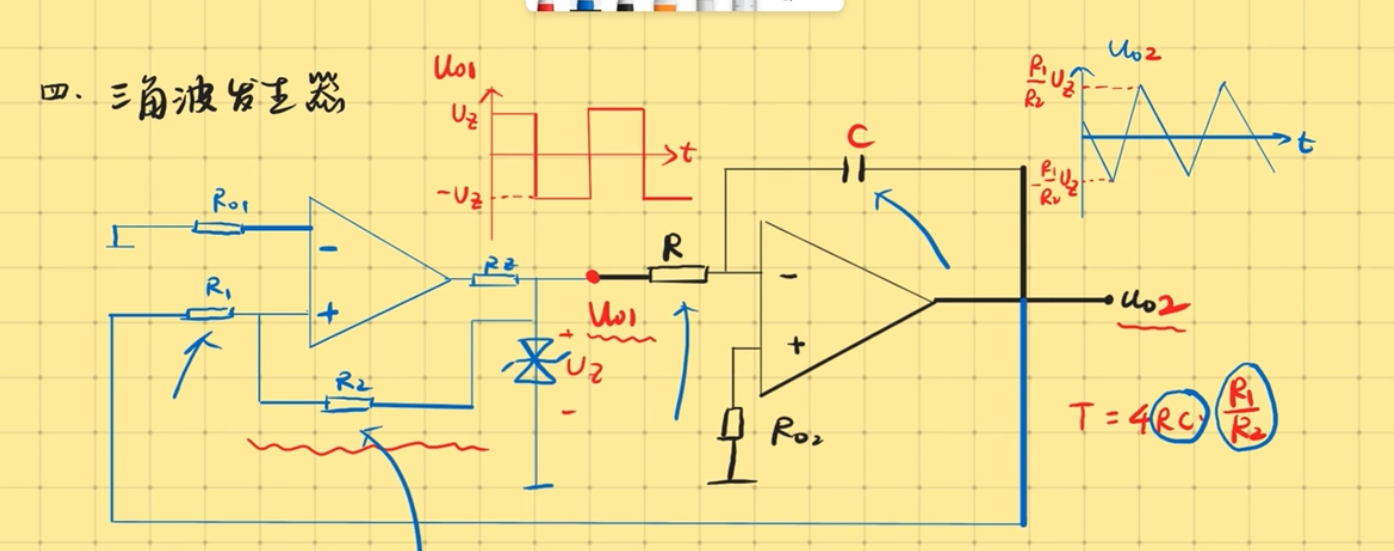 四. 三角波发生器
Uo1
Uz
-Uz
t
Uo2
R1/R2 Uz
-R1/R2 Uz
t
Ro1
-
R1
+
R2
Rz
Uo1
+
Uz
-
R
C
-
+
Ro2
Uo2
T = 4RC · R1/R2